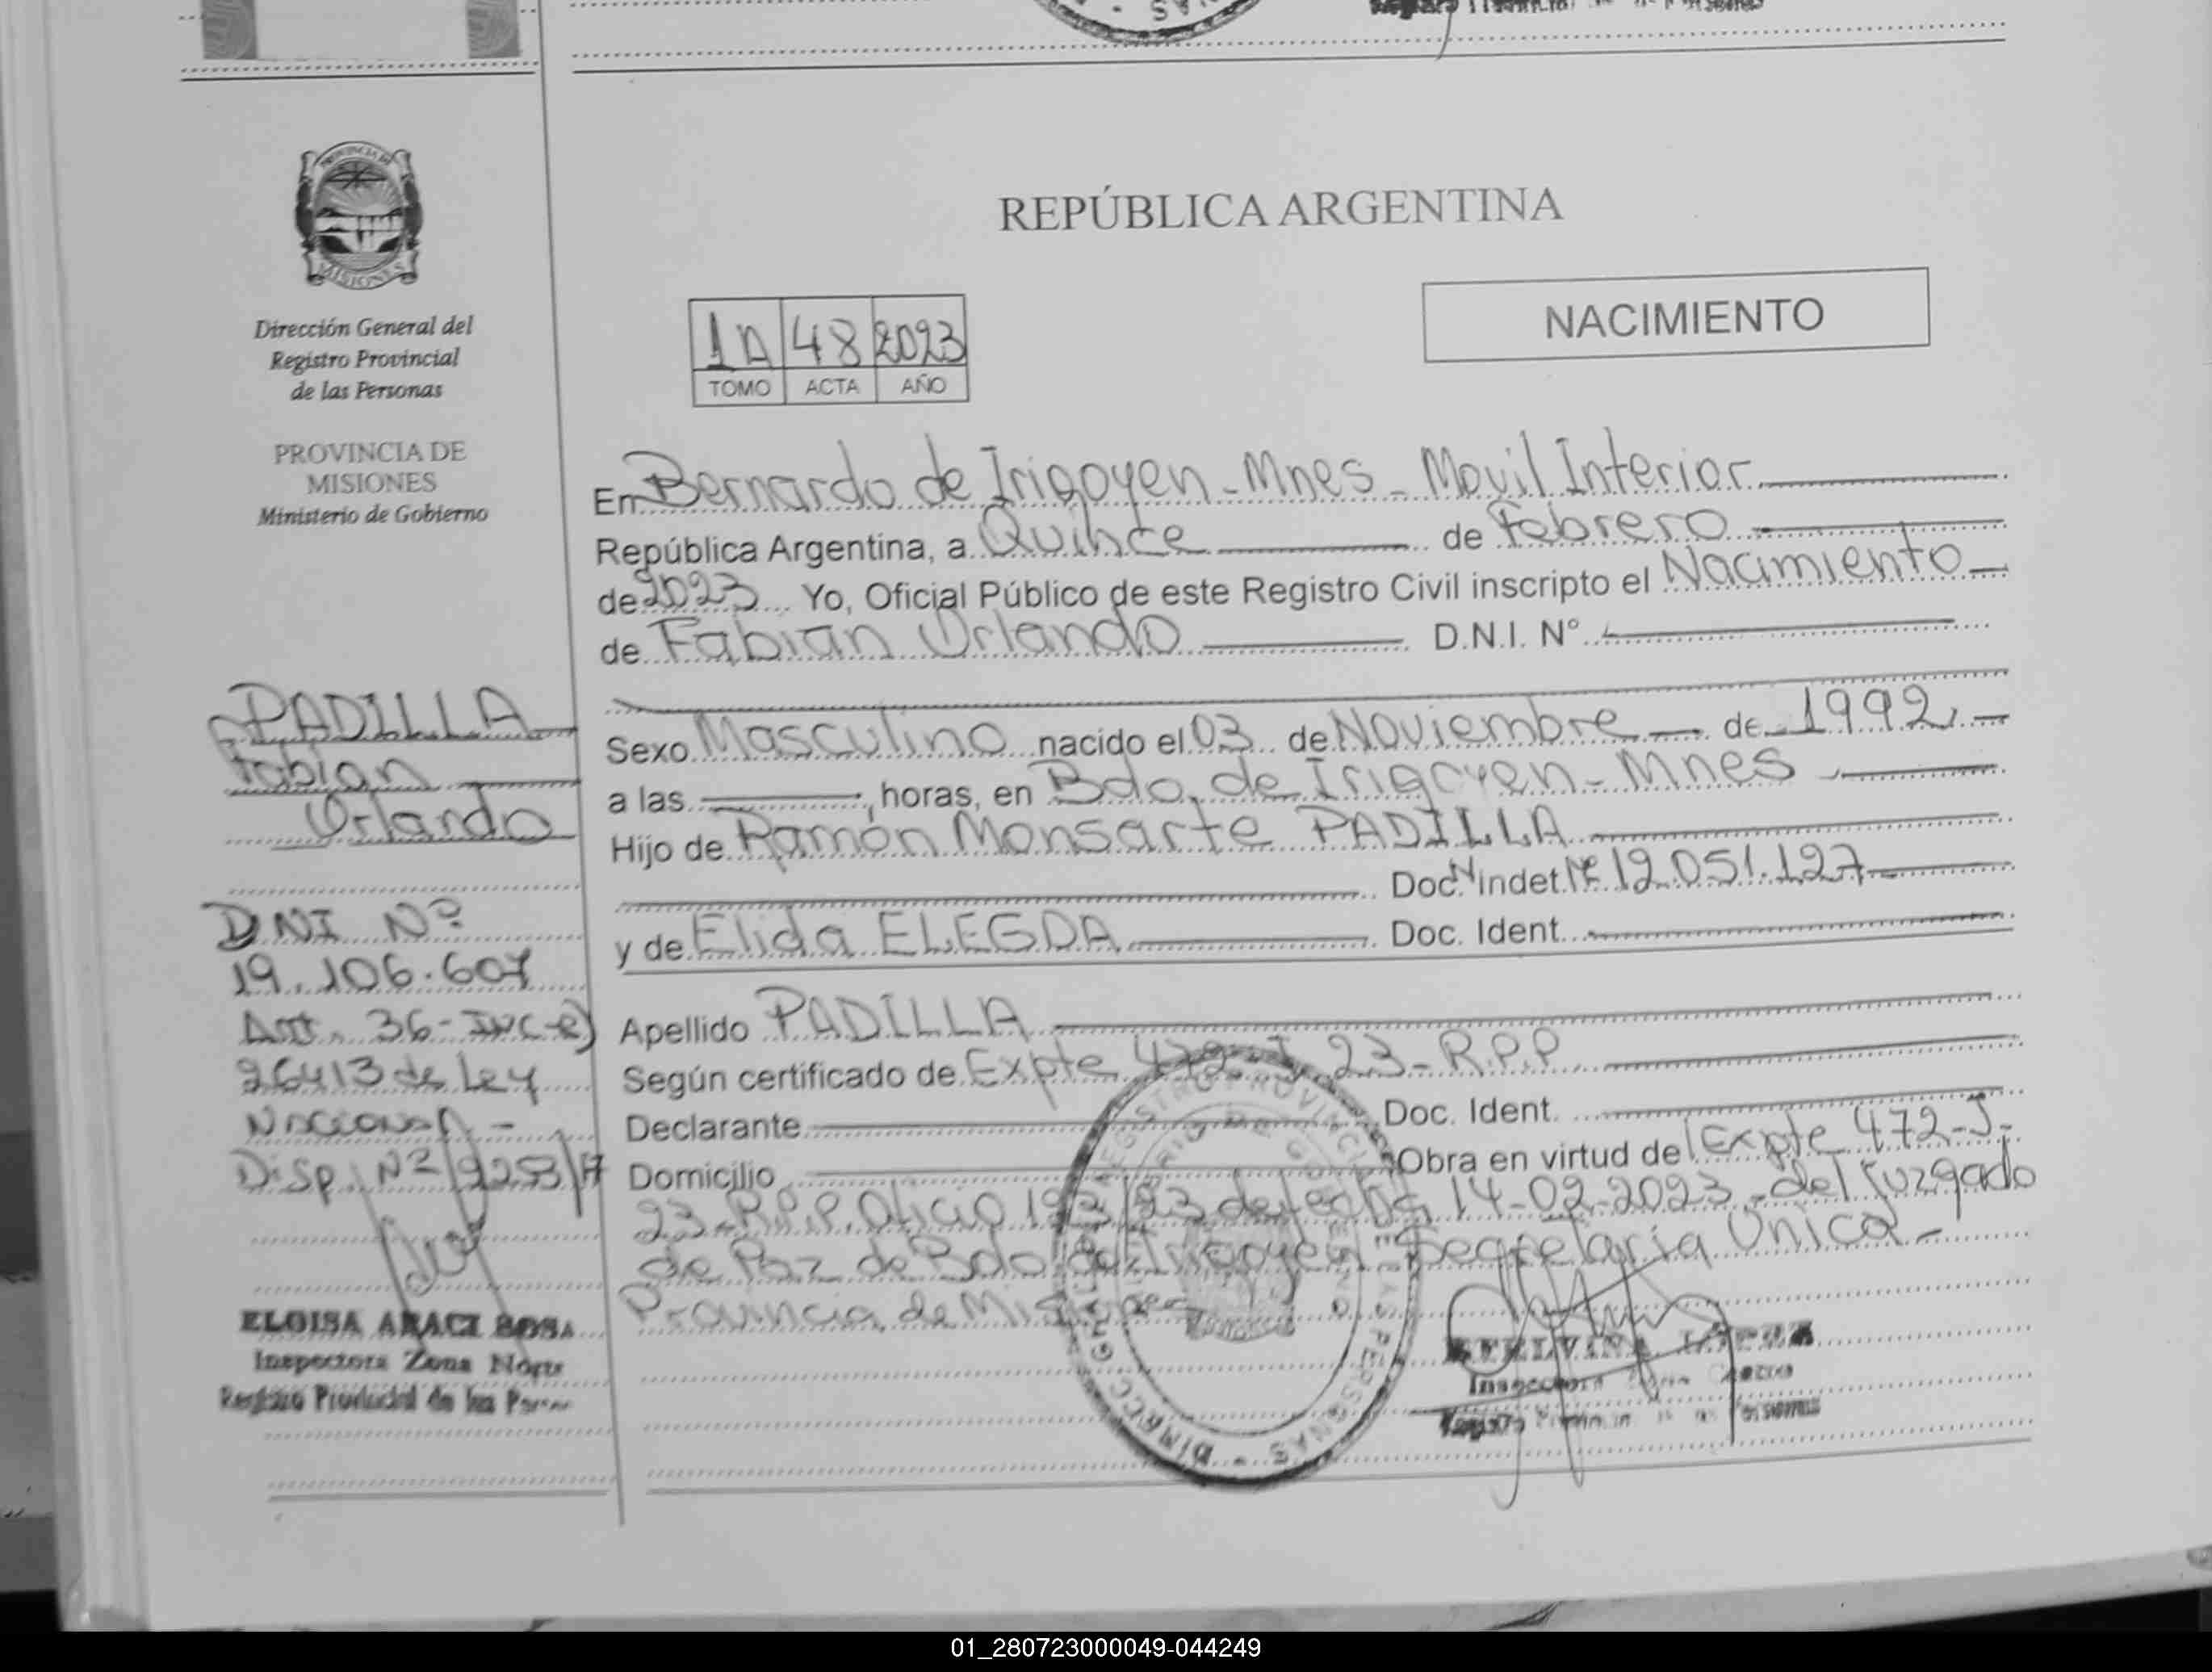 PROVINCIA DE
MISIONES
Dirección General del
Registro Provincial
de las Personas
PROVINCIA DE
MISIONES
Ministerio de Gobierno
PADILLA
Fabian
Orlando
DNI Nº
19.106.607
Art. 36-Inc-e)
26413 de Ley
Nacional -
Disp. Nº 2253/17
ELOISA ARACI SOSA
Inspectora Zona Norte
Registro Provincial de las
REPÚBLICA ARGENTINA
NACIMIENTO
1A 48 2023
TOMO ACTA AÑO
En Bernardo de Irigoyen - Mnes - Movil Interior
República Argentina, a Quince de Febrero
de 2023 Yo, Oficial Público de este Registro Civil inscripto el Nacimiento
de Fabian Orlando D.N.I. Nº
Sexo Masculino nacido el 03 de Noviembre de 1992
a las , horas, en Bdo. de Irigoyen - Mnes
Hijo de Ramón Monsarte PADILLA
Doc. Nº indet Nº 12.051.127
y de Elida ELEGDA Doc. Ident.
Apellido PADILLA
Según certificado de Expte 472-J 23-R.P.P.
Declarante Doc. Ident.
Domicilio Obra en virtud de Expte 472-J-
23-R.P.P. Oficio 193/23 de fecha 14-02-2023 - del Juzgado
de Paz de Bdo de Irigoyen Secretaria Unica -
Provincia de Misiones
LOPEZ
Inspectora Zona
Registro
01_280723000049-044249